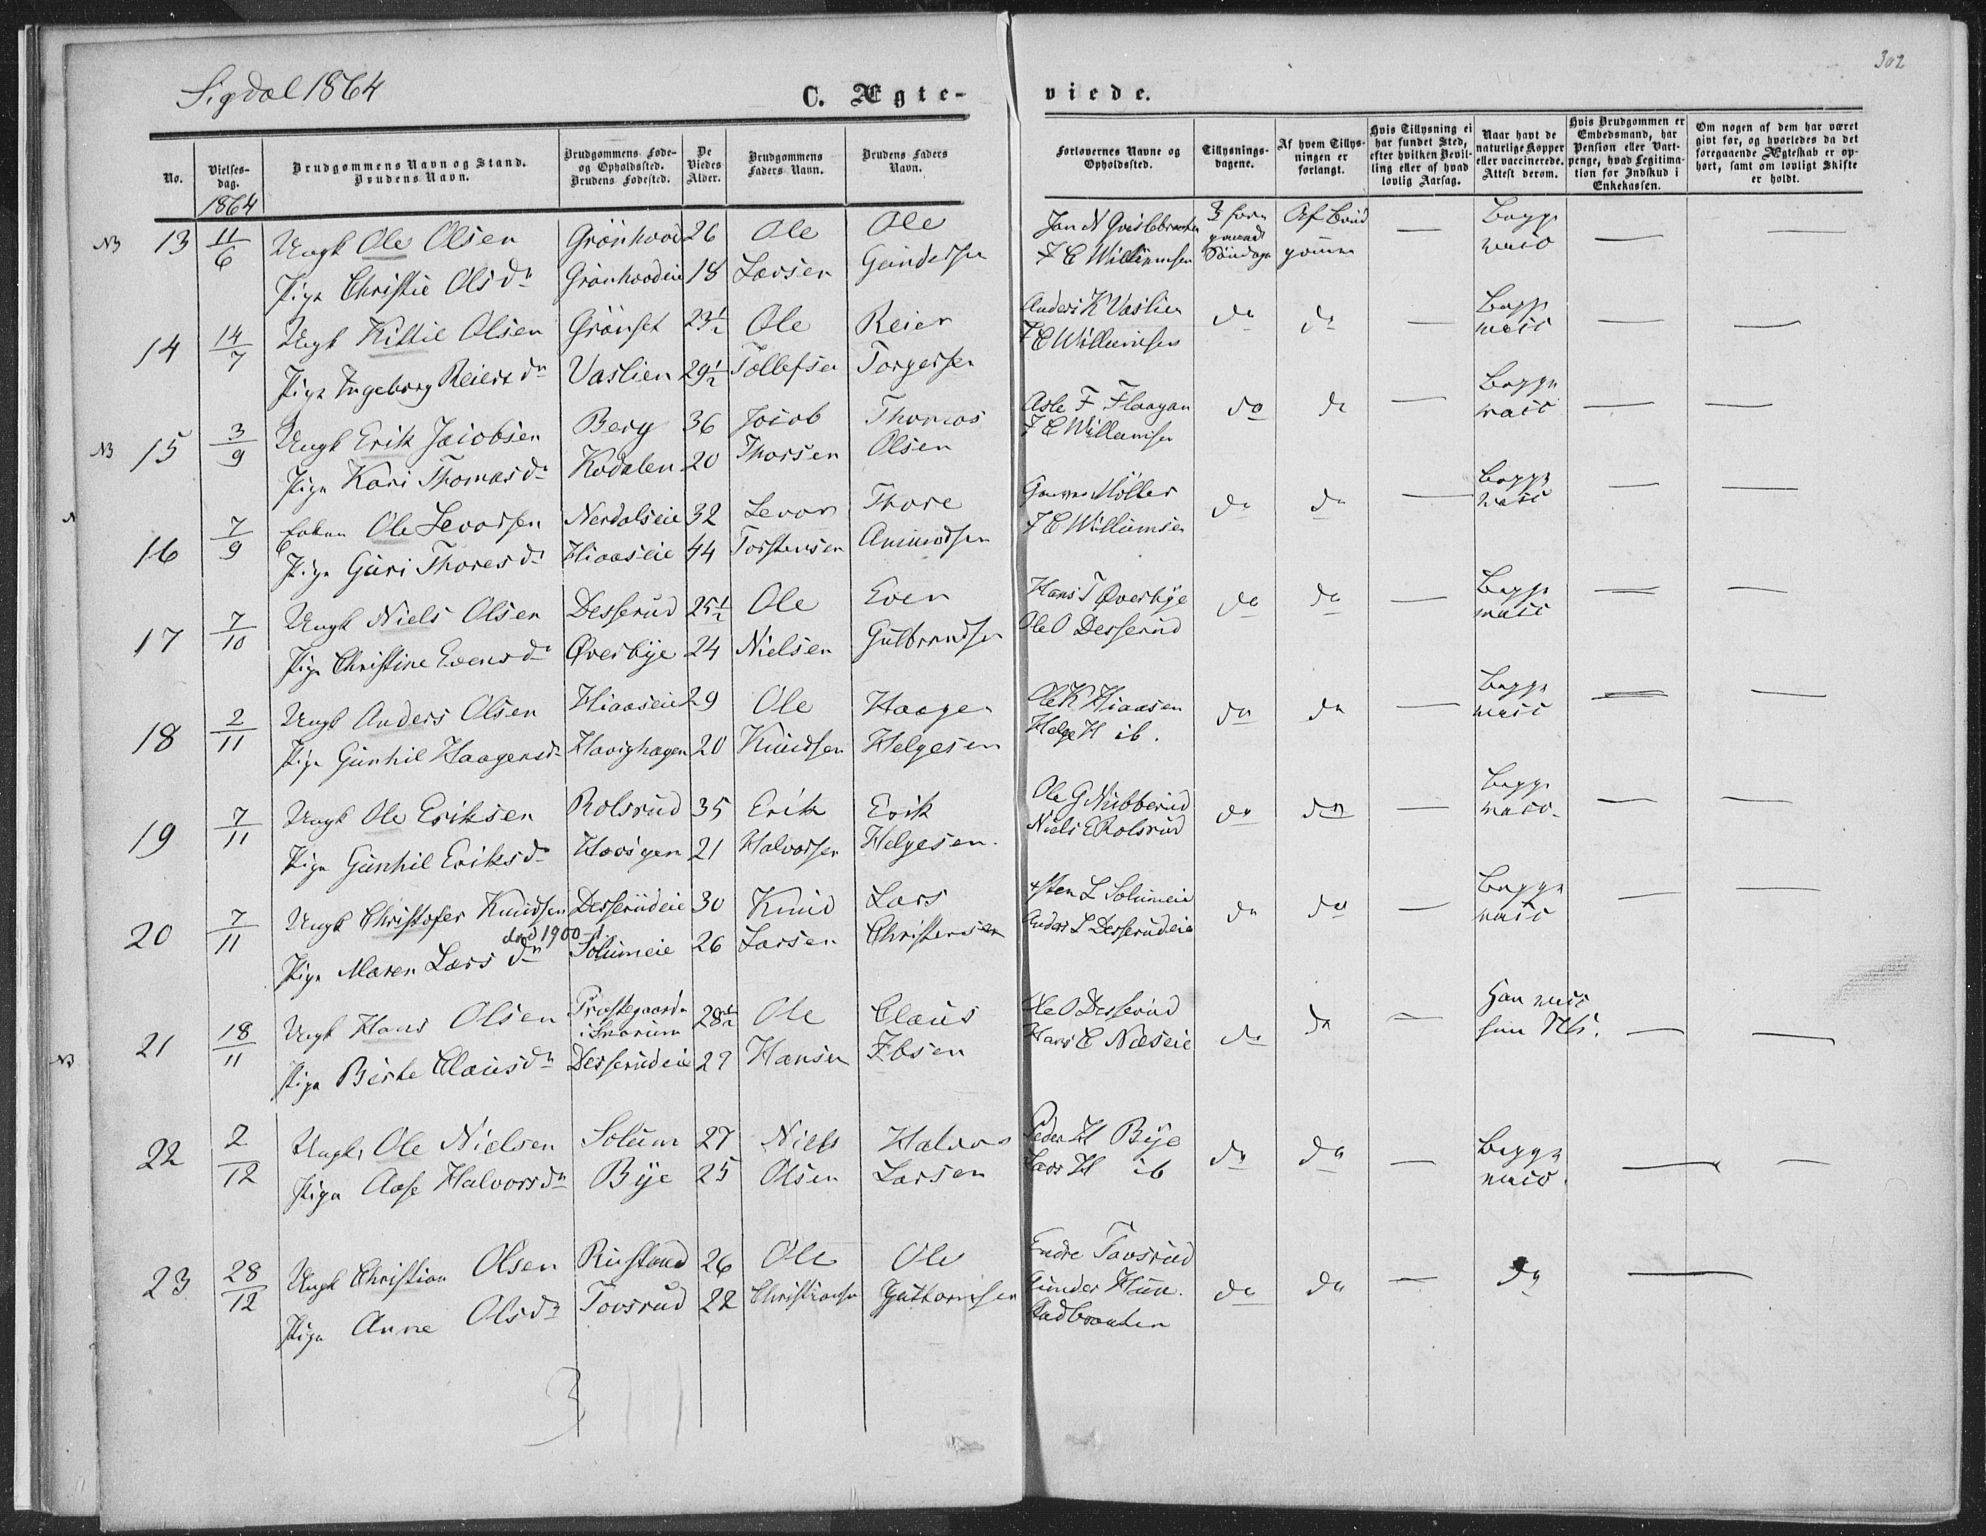 302
Sigdal 1864
C. Ægte-
viede.
No.
Vielses-
dag.
1864
Brudgommens Navn og Stand.
Brudens Navn.
Brudgommens Føde-
og Opholdssted.
Brudens Fødested.
De
Viedes
Alder.
Brudgommens
Faders Navn.
Brudens Faders
Navn.
Forlovernes Navne og
Opholdssted.
Tillysnings-
dagene.
Af hvem Tillys-
ningen er
forlangt.
Hvis Tillysning ei
har fundet Sted,
efter hvilken Bevil-
ling eller af hvad
lovlig Aarsag.
Naar havt de
naturlige Kopper
eller vaccinerede.
Attest derom.
Hvis Brudgommen er
Embedsmand, har
Pension eller Vart-
penge, hvad Legitima-
tion for Indskud i
Enkekassen.
Om nogen af dem har været
givt før, og hvorledes da det
foregaaende Ægteskab er op-
hørt, samt om lovligt Skifte
er holdt.
NB 13 11/6 Ungk Ole Olsen Grønhovd 26 Ole Ole 3 fore Af Brud — Begge — —
Pige Christie Olsdr Grønhovdeie 18 Larsen Gundersen F E Willumsen Søndage gommen vacc
14 14/7 Ungk Kittil Olsen Grønset 23½ Ole Reier Anders K Vaslien do do — Begge — —
Pige Ingeborg Reiersdr Vaslien 29½ Tollefsen Torgersen F E Willumsen vacc
NB 15 3/9 Ungk Erik Jacobsen Berg 36 Jacob Thomas Asle F Flaagan do do — Begge — —
Pige Kari Thomasdr Kodalen 20 Thorsen Olsen F E Willumsen vacc
16 7/9 Ole Levorsen Nerdalseie 32 Levor Thore Møller do do — Begge — —
Pige Guri Thoresdr Hiaaseie 44 Torstensen Amundsen F E Willumsen vacc
17 7/10 Ungk Niels Olsen Desserud 25½ Ole Even Hans T Øverbye do do — Begge — —
Pige Christine Evensdr Øverbye 24 Nielsen Gulbrandsen Ole O Desserud vacc
18 2/11 Ungk Anders Olsen Hiaaseie 29 Ole Haagen Ole K Hiaasen do do — Begge — —
Pige Gunhil Haagensdr Havighagen 20 Knudsen Helgesen Helge H ib. vacc
19 7/11 Ungk Ole Eriksen Rolsrud 35 Erik Erik Ole G Nubberud do do — Begge — —
Pige Gunhil Eriksdr 21 Halvorsen Helgesen. Niels E Rolsrud vacc.
20 7/11 Ungk Christofer Knudsen Desserudeie 30 Knud Lars L Solumeie do do — Begge — —
død 1900
Pige Maren Larsdr Solumeie 26 Larsen Christensen Anders L Desserudeie vacc
NB 21 18/11 Ungk Hans Olsen Præstegaarden 28½ Ole Claus Ole O Desserud do do — Han vacc — —
i Snarum
Pige Birte Clausdr Desserudeie 27 Hansen Ebsen Hans C Næseie hun
22 2/12 Ungk. Ole Nielsen Solum 27 Niels Halvor Peder H Bye do do — Begge — —
Pige Aase Halvorsdr Bye 25 Olsen Larsen Lars H ib vacc.
23 28/12 Ungk Christian Olsen Rustand 26 Ole Ole Endre Tovsrud do do — do —
Pige Anne Olsdr Tovsrud 22 Christiansen Guttormsen Gunder Hun.
Rudbraaten